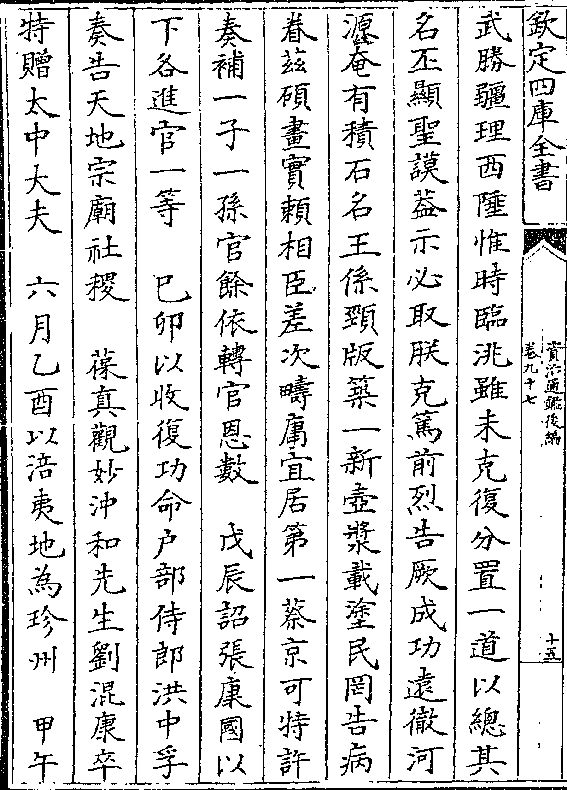 欽定四庫全書
資治通鑑後編
卷九十七
十五
武勝疆理西陲惟時臨洮雖未克復分置一道以總其
名丕顯聖謨葢示必取朕克篤前烈告厥成功遠徹河
源奄有積石名王係頸版築一新壺漿載塗民罔告病
眷茲碩畫實頼相臣差次疇庸宜居第一蔡京可特許
奏補一子一孫官餘依轉官恩數 戊辰詔張康國以
下各進官一等 已卯以收復功命户部侍郎洪中孚
奏告天地宗廟社稷 葆真觀妙沖和先生劉混康卒
特贈太中大夫 六月乙酉以涪夷地為珍州 甲午